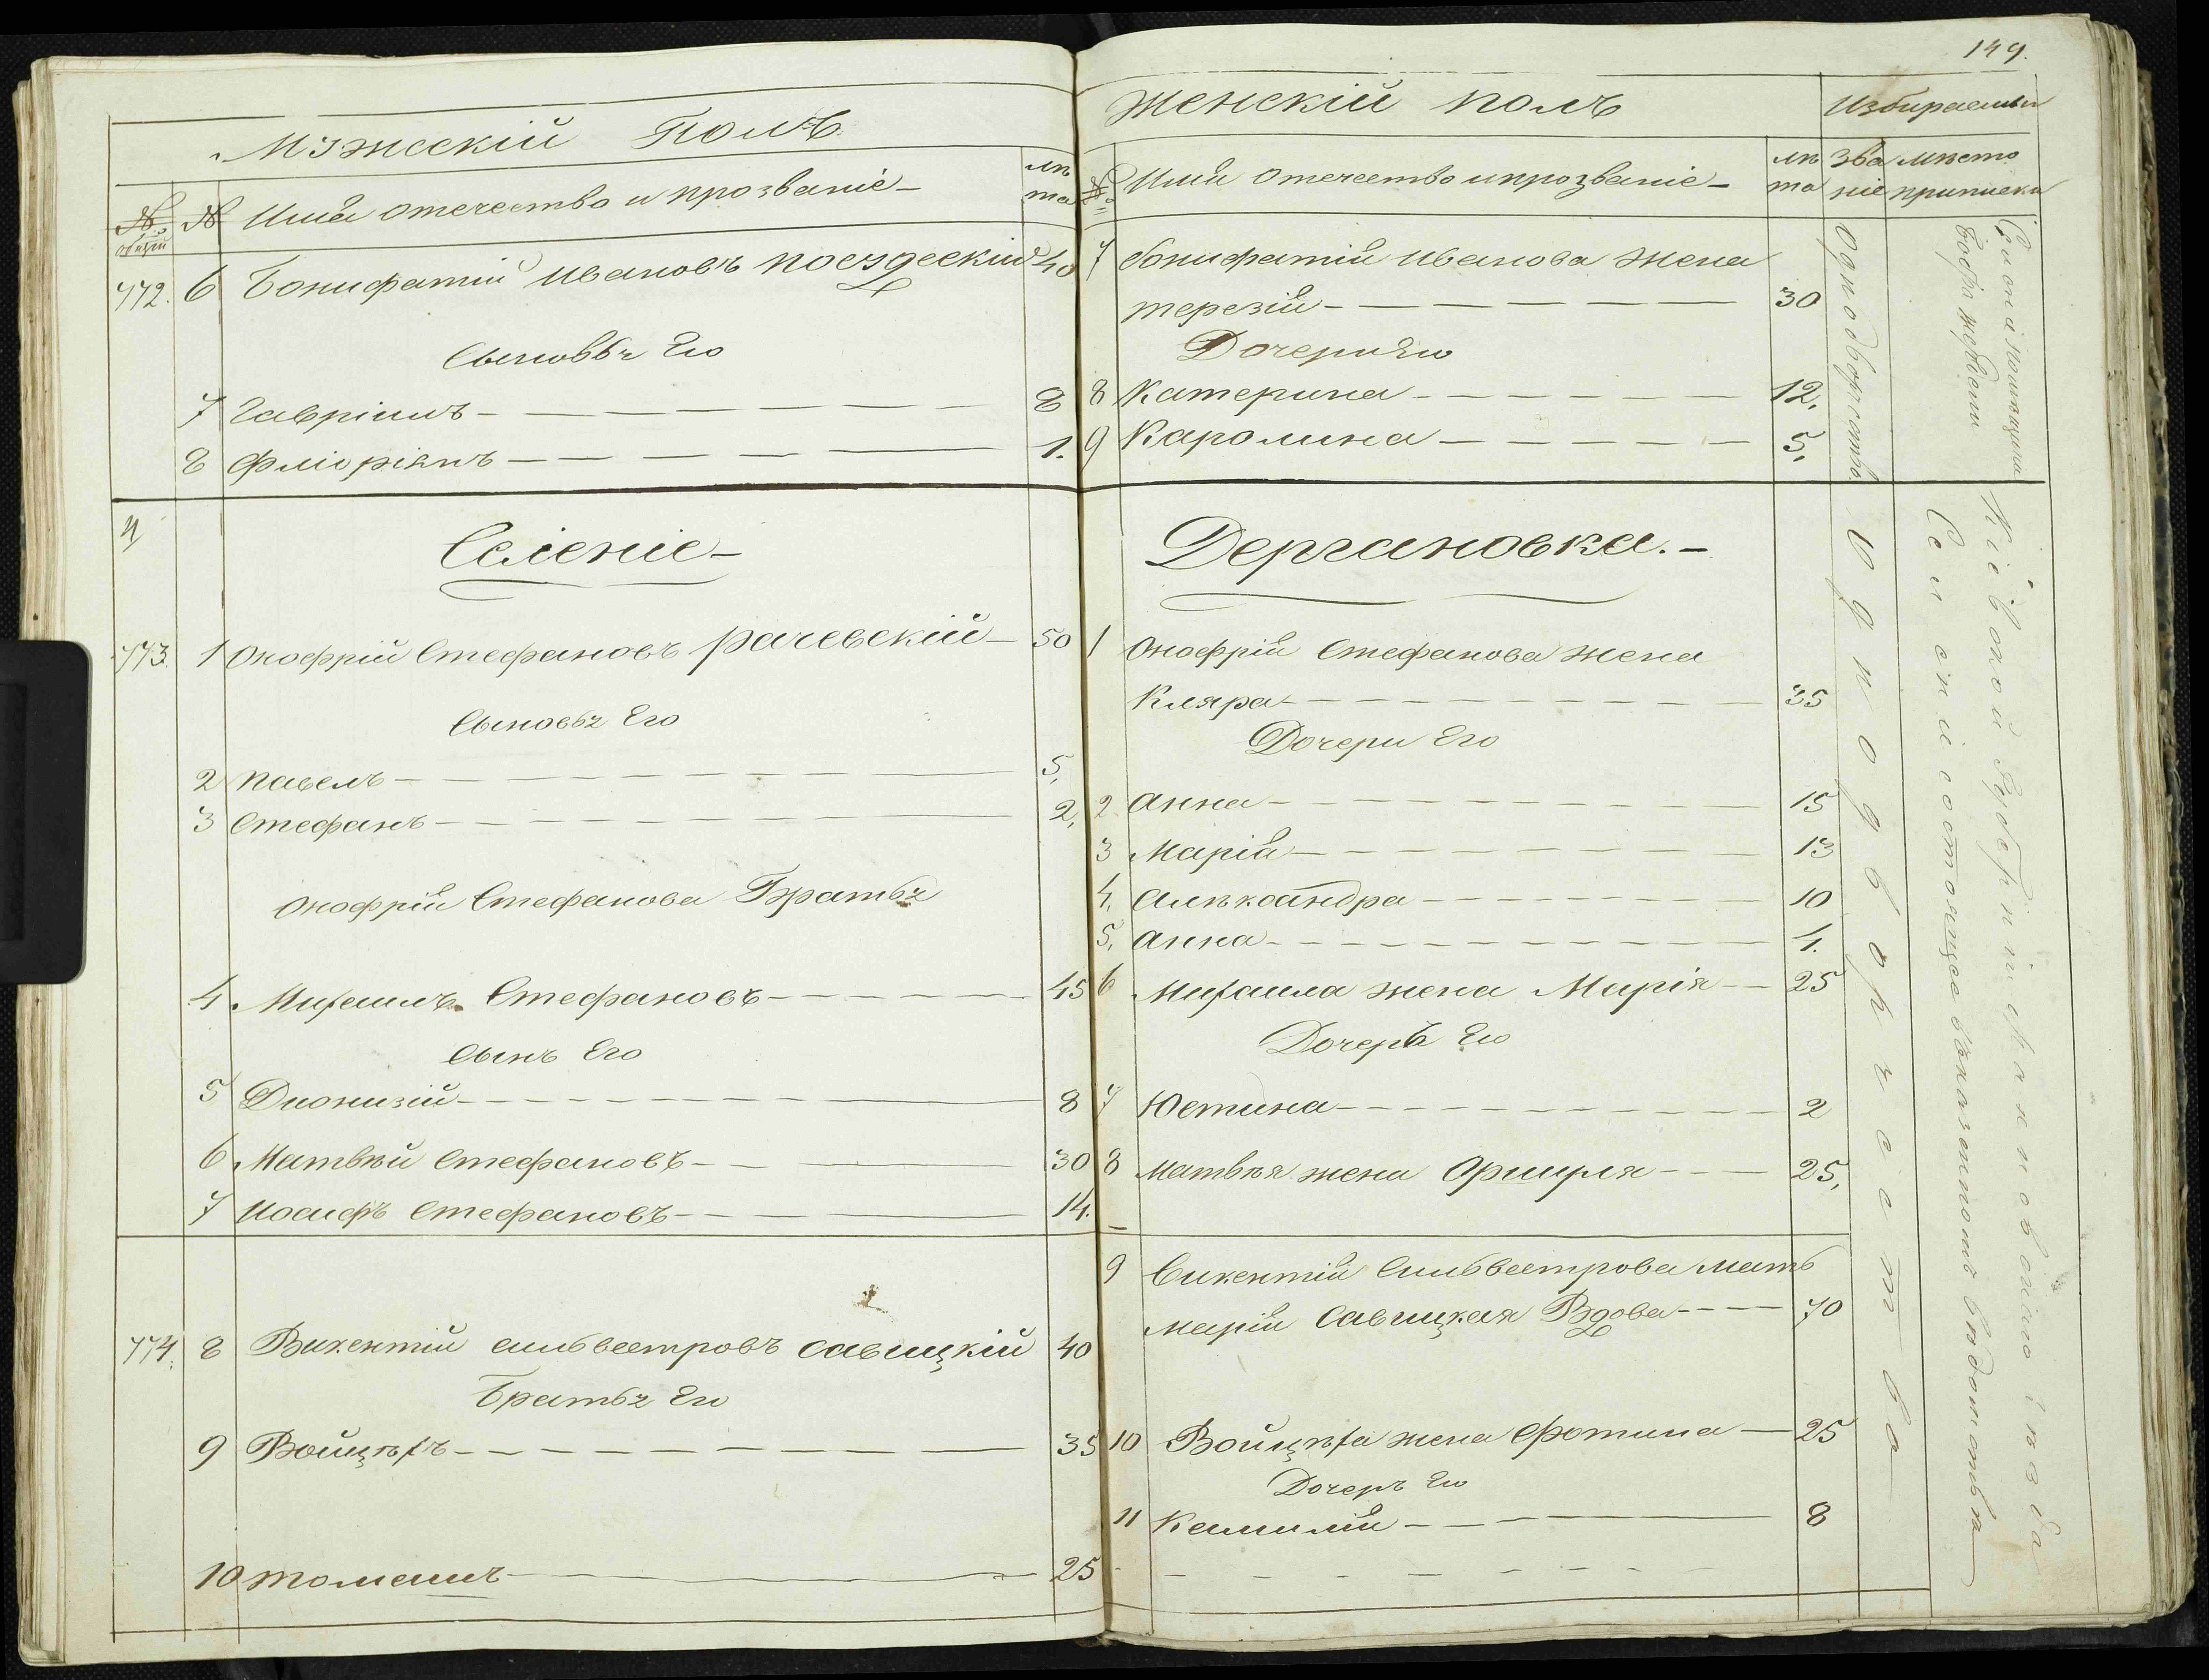 Мужескій Полъ
№ общій № Имя отечество и прозваніе лѣта
772. 6 Бонифатій Ивановъ Поездескій 40
Сыновья Его
7 Гавріилъ 8
8 Флоріянъ 1.
4 Селеніе
773. 1 Онофрій Стефановъ Рачевскій 50
Сыновья Его
2 Павелъ 5.
3 Стефанъ 2.
Онофрія Стефанова Братья
4 Михаилъ Стефановъ 45
Сынъ Его
5 Дионизій 8
6 Матвѣй Стефановъ 30
7 Иосифъ Стефановъ 14.
774. 8 Викентій Сильвестровъ Савицкій 40
Братья Его
9 Войцѣхъ 35
10 Томашъ 25
149.
Женскій полъ Избираемыя
№ Имя отечество и прозваніе лѣта званіе мѣсто приписки
7 Бонифатія Иванова Жена
Терезія 30
Дочери Его
8 Катерина 12.
9 Каролина 5.
Однодворчество
Дергановка.
1 Онофрія Стефанова Жена
Кляра 35
Дочери Его
2 Анна 15
3 Марія 13
4. Алѣксандра 10
5. Анна 4.
6 Михаила жена Марія 25
Дочерь Его
7 Юстина 2
8 Матвѣя жена Оршуля 25,
9 Викентія Сильвестрова мать
Марія Савицкая Вдова 70
10 Войцѣха жена Фотина 25
Дочерь Его
11 Камилія 8
Однодворчества
Кіевской Губерніи Махновскаго уѣзда